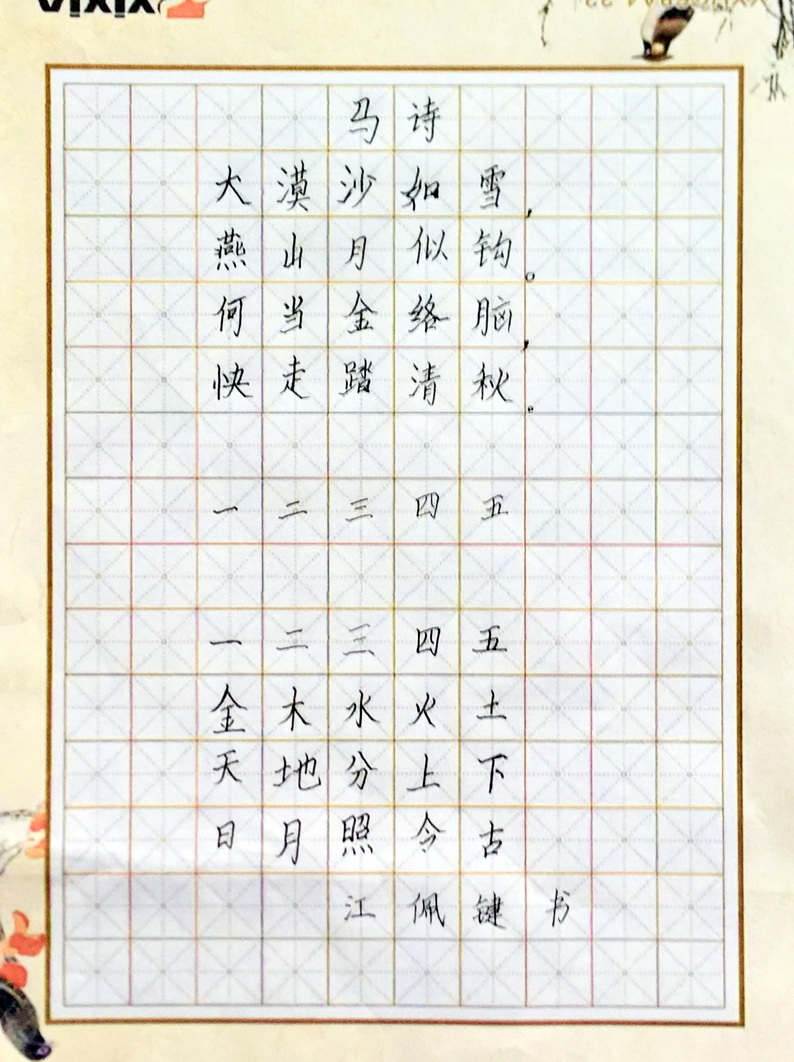 马诗
大漠沙如雪，
燕山月似钩。
何当金络脑，
快走踏清秋。
一二三四五
一二三四五
金木水火土
天地分上下
日月照今古
江佩键书